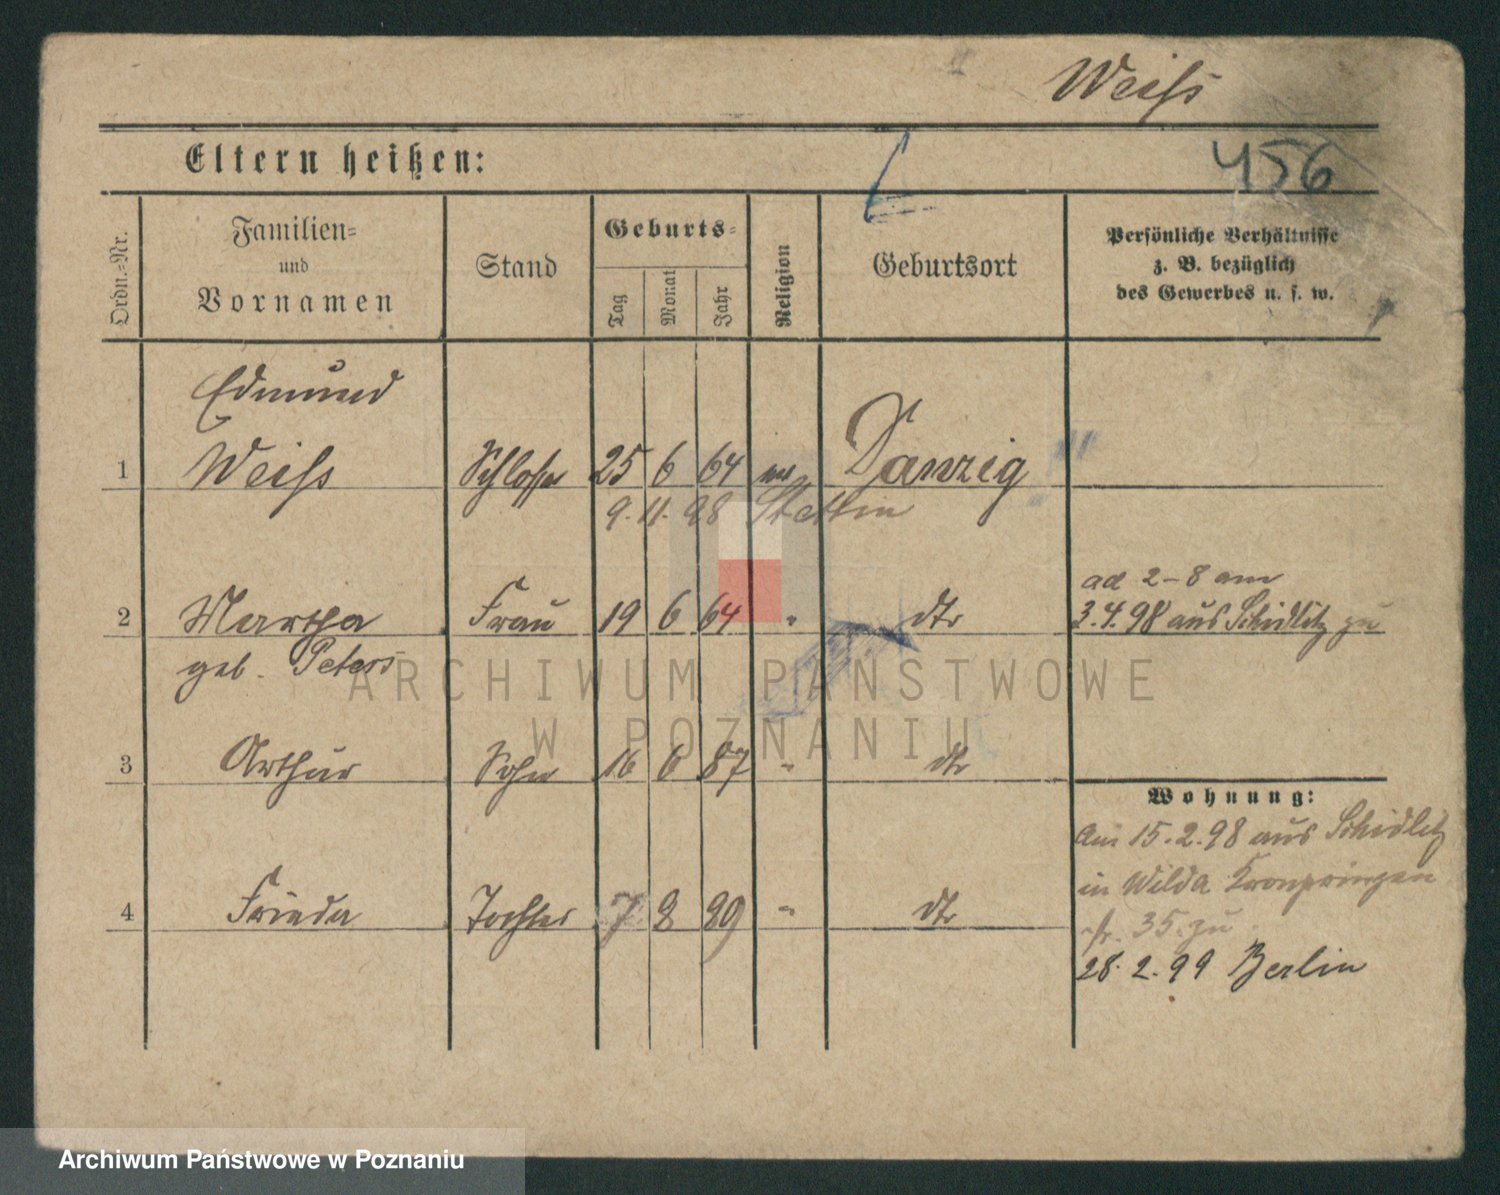 Weiſs
Eltern heißen:
456
Ordn.-Nr.
Familien-
und
Vornamen
Stand
Geburts-
Tag
Monat
Jahr
Religion
Geburtsort
Persönliche Verhältnisse
z. B. bezüglich
des Gewerbes u. s. w.
Edmund
1 Weiſs Schlosser 25 6 64 Danzig
9. 11. 98 Stettin
ad 2-8 am
2 Martha Frau 19 6 64 " dto 3.4.98 aus Schidlitz zu
geb. Peters
ARCHIWUM PAŃSTWOWE
W POZNANIU
3 Arthur Sohn 16 6 87 " dto
Wohnung:
Am 15.2.98 aus Schidlitz
in Wilda Kronprinzen
4 Frieda Tochter 7 8 89 " dto
str. 35. zu
28. 2. 99 Berlin
Archiwum Państwowe w Poznaniu